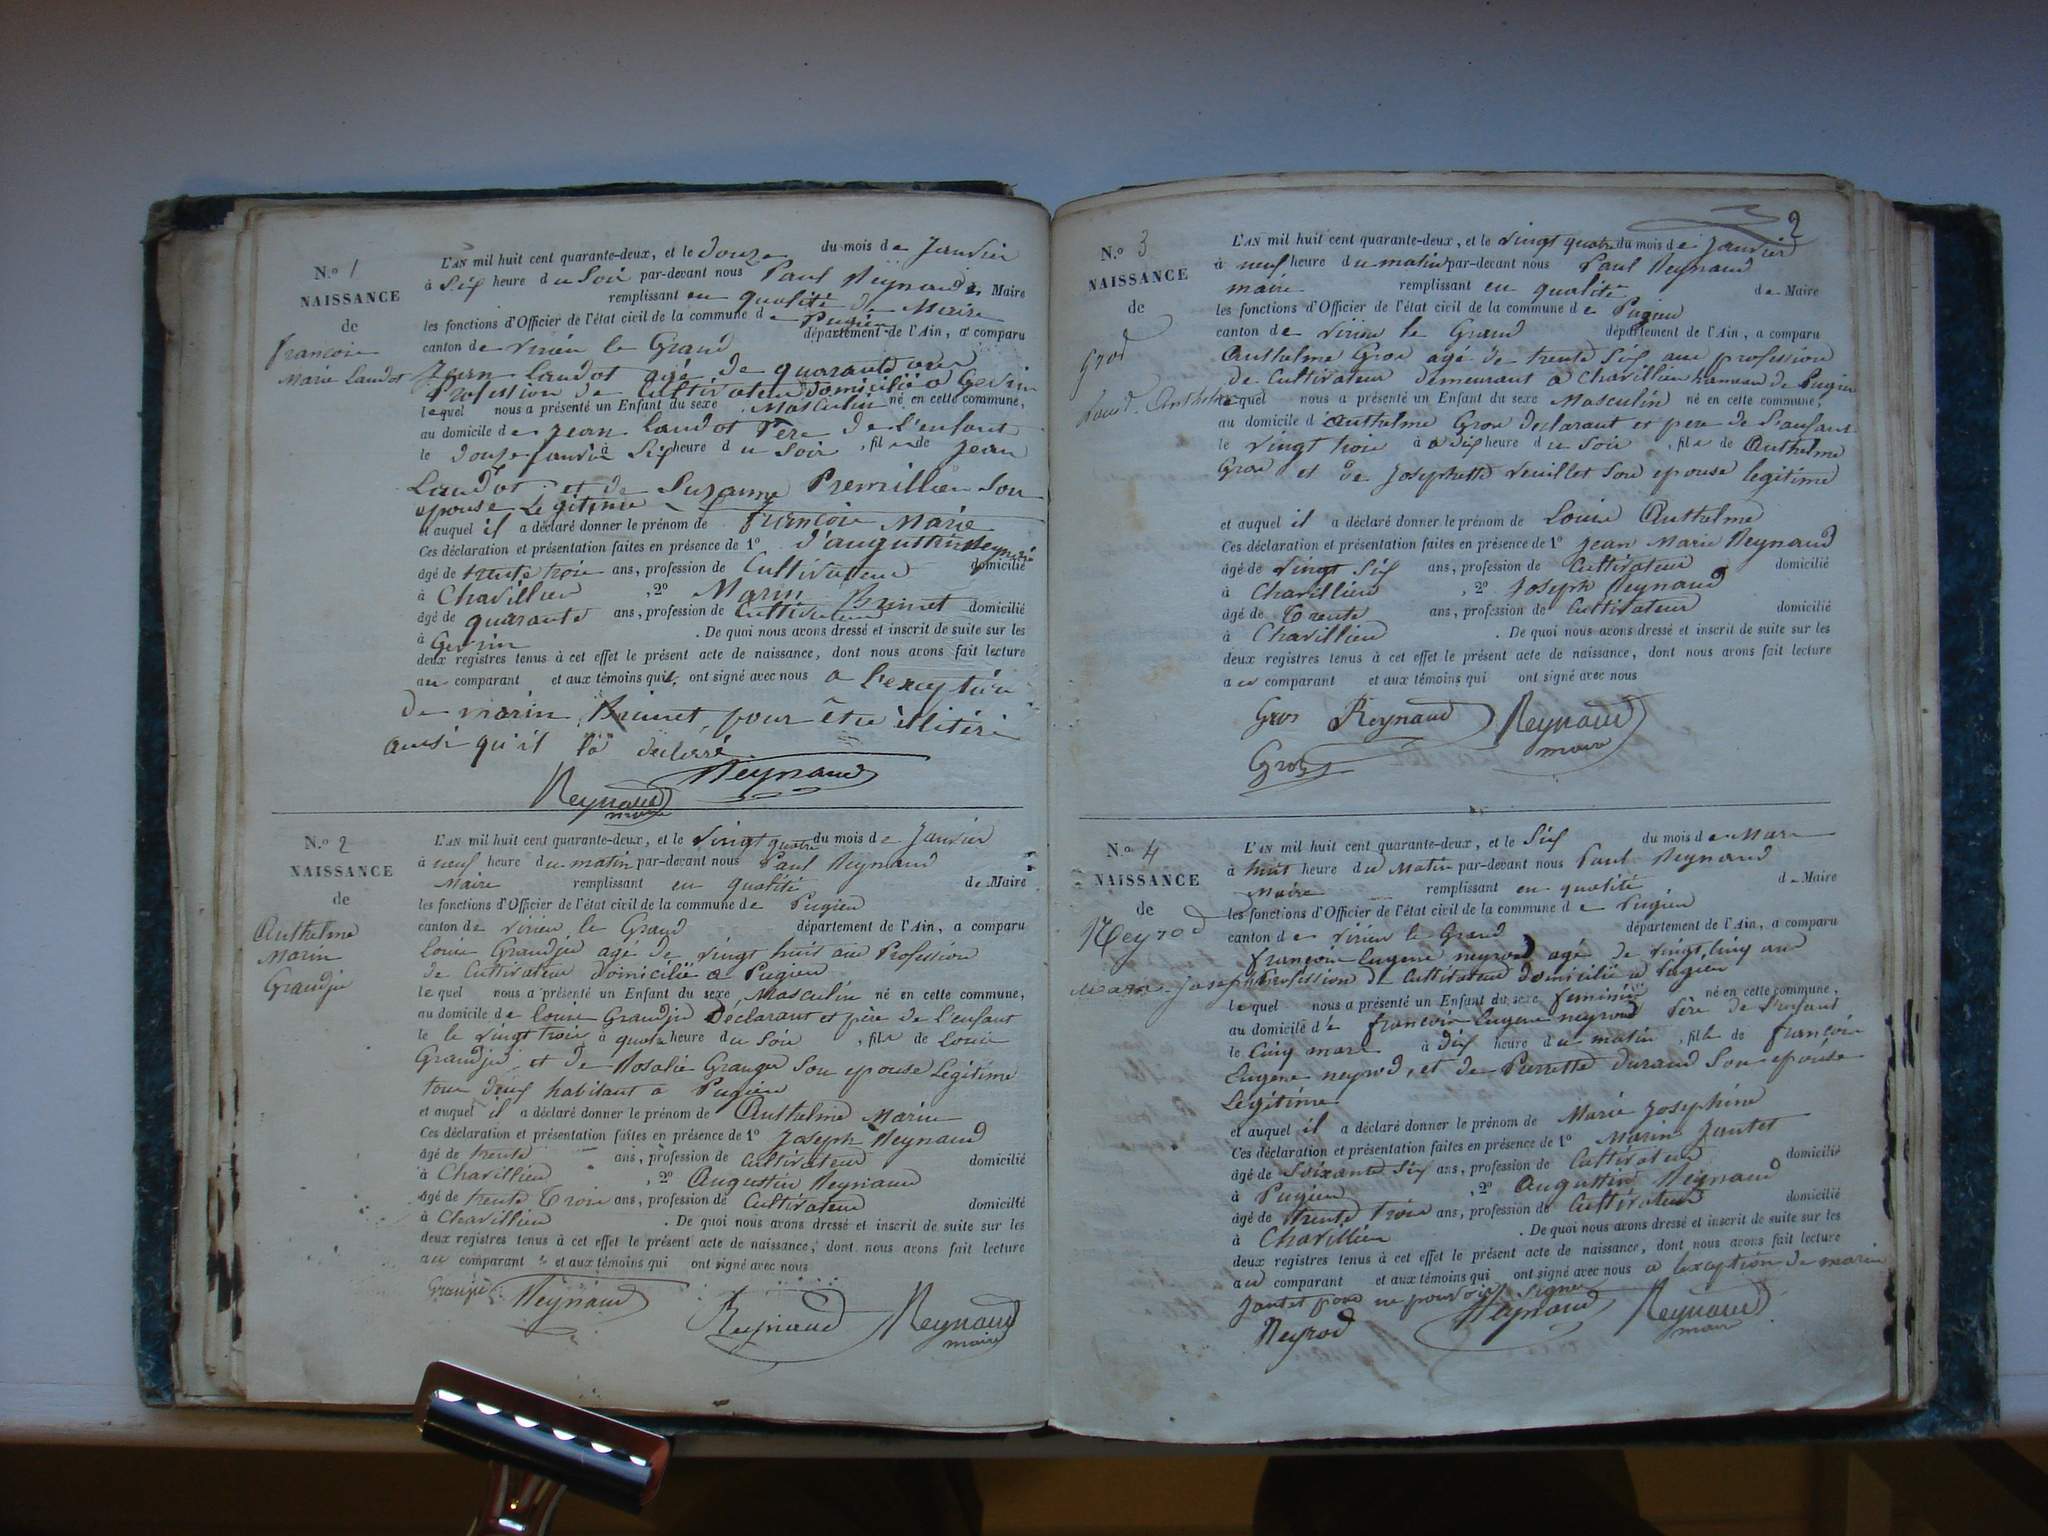 N.º 1
NAISSANCE
de
françois
Marie Landot
L'AN mil huit cent quarante-deux, et le douze du mois de Janvier
à Six heure du Soir par-devant nous Paul Reynaud Maire
remplissant en qualité de Maire
les fonctions d'Officier de l'état civil de la commune de Pugieu
canton de Virieu le Grand département de l'Ain, a comparu
Jean Landot agé de quarante ans
Profession de Cultivateur domicilié a
lequel nous a présenté un Enfant du sexe Masculin né en cette commune,
au domicile de Jean Landot Père de l'enfant
le douze janvier à Six heure du Soir, fils de Jean
Landot et de Suzanne Premillieu Son
epouse Legitime
et auquel il a déclaré donner le prénom de françois Marie
Ces déclaration et présentation faites en présence de 1º d'augustin Reynaud
âgé de trente trois ans, profession de Cultivateur domicilié
à Chavillieu, 2º Marin Brunet
âgé de quarante ans, profession de Cultivateur domicilié
à . De quoi nous avons dressé et inscrit de suite sur les
deux registres tenus à cet effet le présent acte de naissance, dont nous avons fait lecture
au comparant et aux témoins qui ont signé avec nous a l'exception
de marin Brunet pour être
ainsi qu'il la declarré
Reynaud
Reynaud
maire
N.º 2
NAISSANCE
de
Anthelme
Marin
Grandju
L'AN mil huit cent quarante-deux, et le vingt quatre du mois de Janvier
à neuf heure du matin par-devant nous Paul Reynaud
Maire remplissant en qualité de Maire
les fonctions d'Officier de l'état civil de la commune de Pugieu
canton de Virieu le Grand département de l'Ain, a comparu
Louis Grandju agé de vingt huit ans Profession
de Cultivateur domicilié a Pugieu
lequel nous a présenté un Enfant du sexe Masculin né en cette commune,
au domicile de louis Grandju Declarant et père de l'enfant
le le vingt trois à quatre heure du Soir, fils de Louis
Grandju et de Rosalie Granger Son epouse Legitime
tous deux habitant a Pugieu
et auquel il a déclaré donner le prénom de Anthelme Marin
Ces déclaration et présentation faites en présence de 1º Joseph Reynaud
âgé de trente ans, profession de Cultivateur domicilié
à Chavillieu, 2º Augustin Reynaud
âgé de trente Trois ans, profession de Cultivateur domicilié
à Chavillieu . De quoi nous avons dressé et inscrit de suite sur les
deux registres tenus à cet effet le présent acte de naissance, dont nous avons fait lecture
au comparant et aux témoins qui ont signé avec nous
Reynaud Reynaud Reynaud
maire
2
N.º 3
NAISSANCE
de
Gros
Louis Anthelme
L'AN mil huit cent quarante-deux, et le vingt quatre du mois de Janvier
à neuf heure du matin par-devant nous Paul Reynaud
maire remplissant en qualité de Maire
les fonctions d'Officier de l'état civil de la commune de Pugieu
canton de Virieu le Grand département de l'Ain, a comparu
Anthelme Gros agé de trente Six ans profession
de Cultivateur demeurant a Chavillieu hameau de Pugieu
lequel nous a présenté un Enfant du sexe Masculin né en cette commune,
au domicile d'Anthelme Gros declarant et pere de l'enfant
le vingt trois à Dix heure du Soir, fils de Anthelme
Gros et de Josephette Son epouse legitime
et auquel il a déclaré donner le prénom de Louis Anthelme
Ces déclaration et présentation faites en présence de 1º Jean Marie Reynaud
âgé de vingt Six ans, profession de Cultivateur domicilié
à Chavillieu, 2º Joseph Reynaud
âgé de Trente ans, profession de Cultivateur domicilié
à Chavillieu . De quoi nous avons dressé et inscrit de suite sur les
deux registres tenus à cet effet le présent acte de naissance, dont nous avons fait lecture
au comparant et aux témoins qui ont signé avec nous
Gros Reynaud Reynaud
maire
N.º 4
NAISSANCE
de
Neyrod
Marie Josephine
L'AN mil huit cent quarante-deux, et le Six du mois de Mars
à huit heure du Matin par-devant nous Paul Reynaud
Maire remplissant en qualité de Maire
les fonctions d'Officier de l'état civil de la commune de Pugieu
canton de Virieu le Grand département de l'Ain, a comparu
françois Eugene neyrod agé de vingt cinq ans
Profession de Cultivateur domicilié a Pugieu
lequel nous a présenté un Enfant du sexe feminin né en cette commune,
au domicile de françois Eugene neyrod Père de l'enfant
le Cinq mars à dix heure du matin, fille de françois
Eugene neyrod, et de Pierrette Durand Son epouse
Legitime
et auquel il a déclaré donner le prénom de Marie Josephine
Ces déclaration et présentation faites en présence de 1º Marin Jantet
âgé de Soixante Six ans, profession de Cultivateur domicilié
à Pugieu, 2º Augustin Reynaud
âgé de trente trois ans, profession de Cultivateur domicilié
à Chavillieu . De quoi nous avons dressé et inscrit de suite sur les
deux registres tenus à cet effet le présent acte de naissance, dont nous avons fait lecture
au comparant et aux témoins qui ont signé avec nous a l'exception de marin
Jantet pour ne pouvoir signer
Neyrod Reynaud Reynaud
maire